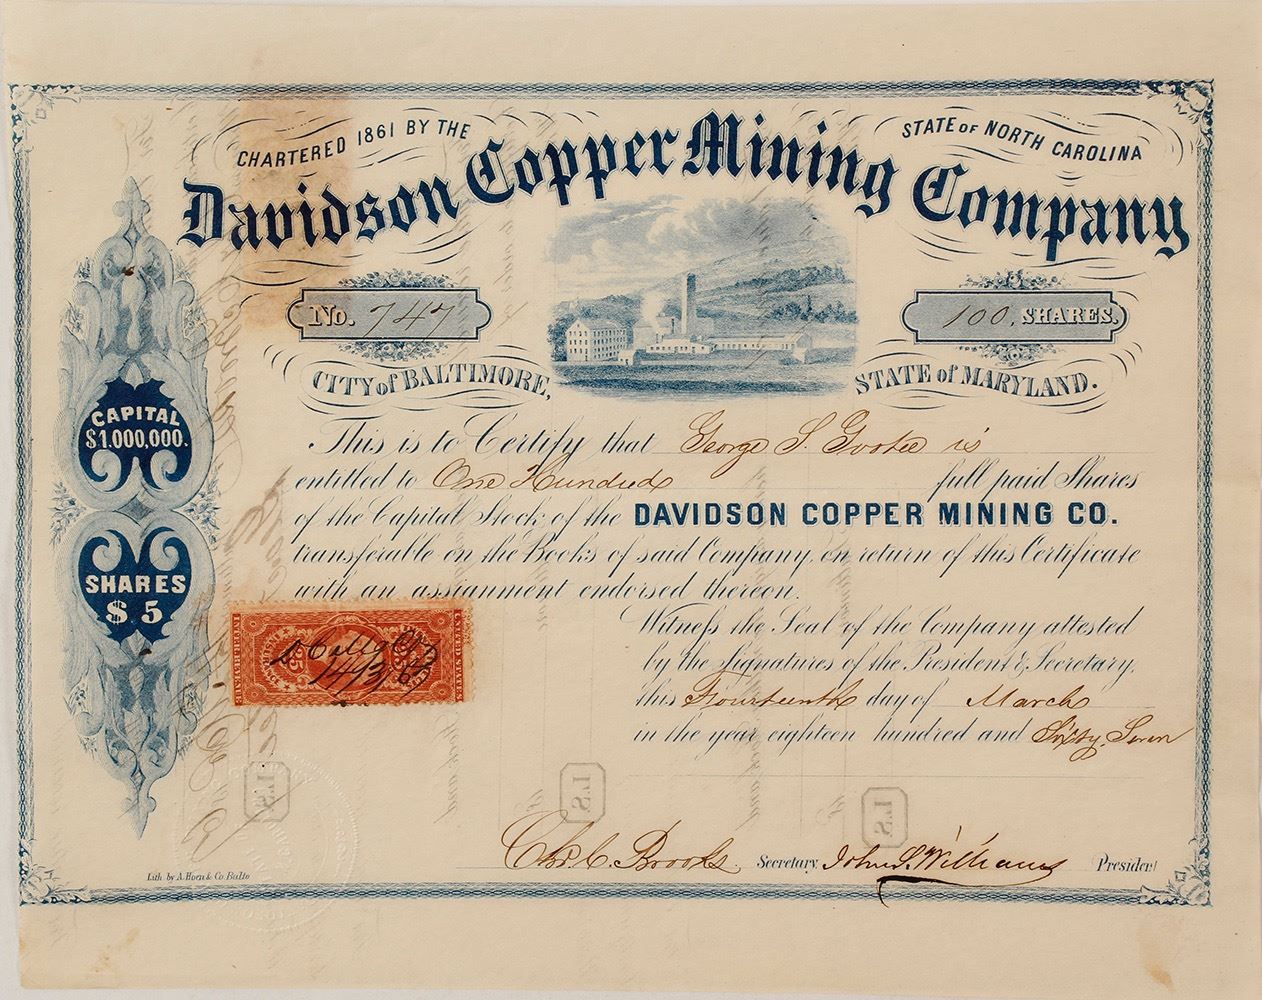 CHARTERED 1861 BY THE
STATE OF NORTH CAROLINA
Davidson Copper Mining Company
No. 747
100, SHARES.
CITY of BALTIMORE,
STATE of MARYLAND.
CAPITAL
$1,000,000.
SHARES
$ 5
This is to Certify that George S. is
entitled to One Hundred full paid Shares
of the Capital Stock of the DAVIDSON COPPER MINING CO.
transferable on the Books of said Company, on return of this Certificate
with an assignment endorsed thereon.
Witness the Seal of the Company attested
by the Signatures of the President & Secretary,
this Fourteenth day of March
in the year eighteen hundred and Sixty Seven
25
UNITED STATES
L.S.
L.S.
L.S.
Chs. C. Brooks Secretary. John S. Williams President
Lith by A. Hoen & Co Balto